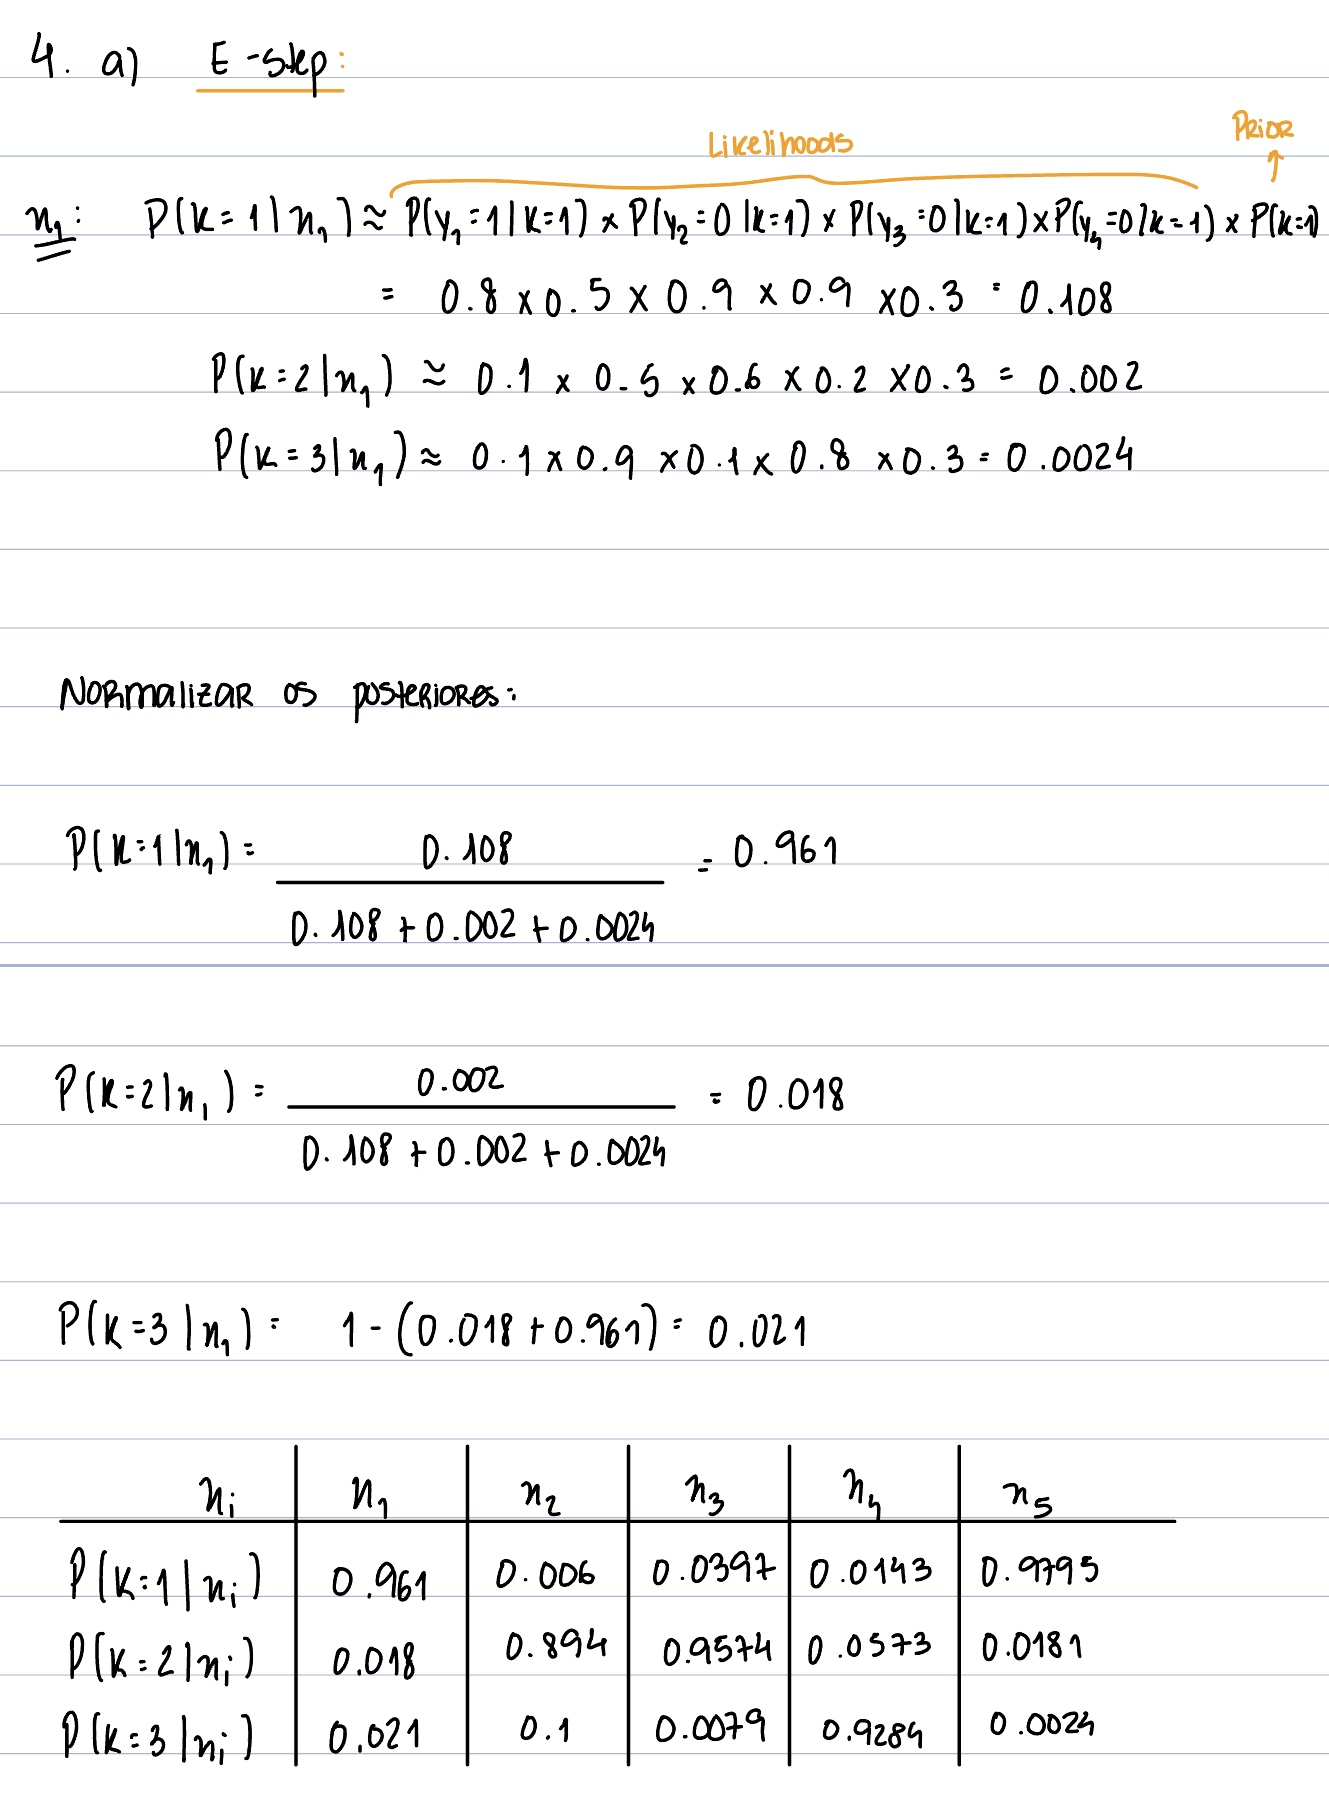 4. a) E-step:
Likelihoods
Prior
↑
x₁: P(K=1|x₁) ≈ P(y₁=1|K=1) × P(y₂=0|K=1) × P(y₃=0|K=1) × P(y₄=0|K=1) × P(K=1)
= 0.8 × 0.5 × 0.9 × 0.9 × 0.3 = 0.108
P(K=2|x₁) ≈ 0.1 × 0.5 × 0.6 × 0.2 × 0.3 = 0.002
P(K=3|x₁) ≈ 0.1 × 0.9 × 0.1 × 0.8 × 0.3 = 0.0024
Normalizar os posteriores:
P(K=1|x₁) = 0.108 / 0.108 + 0.002 + 0.0024 = 0.961
P(K=2|x₁) = 0.002 / 0.108 + 0.002 + 0.0024 = 0.018
P(K=3|x₁) = 1 - (0.018 + 0.961) = 0.021
xᵢ x₁ x₂ x₃ x₄ x₅
P(K=1|xᵢ) 0.961 0.006 0.0397 0.0143 0.9795
P(K=2|xᵢ) 0.018 0.894 0.9574 0.0573 0.0181
P(K=3|xᵢ) 0.021 0.1 0.0079 0.9284 0.0024